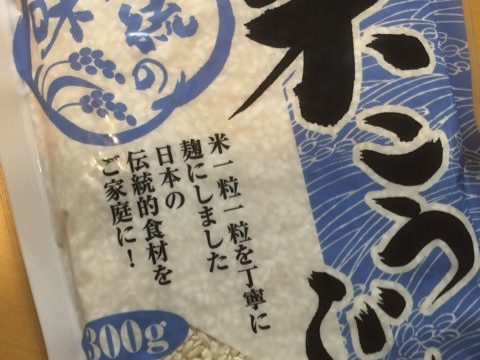 米こうじ
伝統の
味
米一粒一粒を丁寧に
麹にしました
日本の
伝統的食材を
ご家庭に！
300g